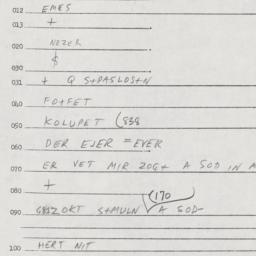 012 EMES
+
013
NEZER
020
$
030
031 + Q S+PASLOS+N
040 FO+FET
050 KOLUPET (838
060 DER EJER = EVER
070 ER VET MIR ZOG+ A SOD IN A
+
080 (170
090 S+MULN A SOD
100 HERT NIT